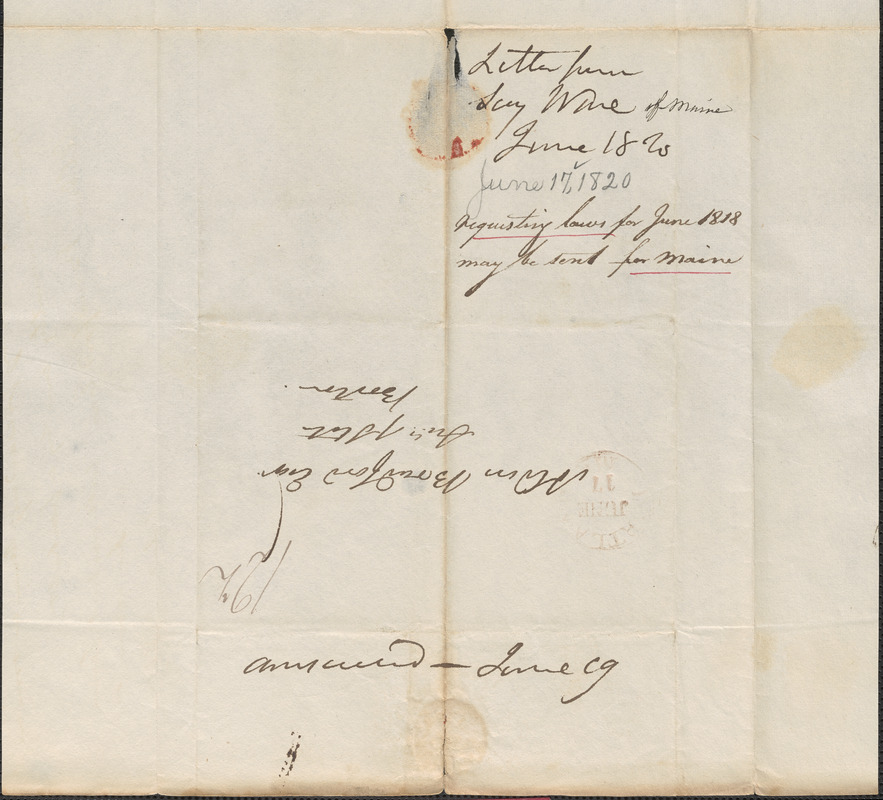 Letter from
Secy Ware of Maine
June 1820
June 17, 1820
requesting laws for June 1818
may be sent for Maine
Alden Bradford Esqr
Secy of State
Boston
12½
answered — June 19
17
JUNE